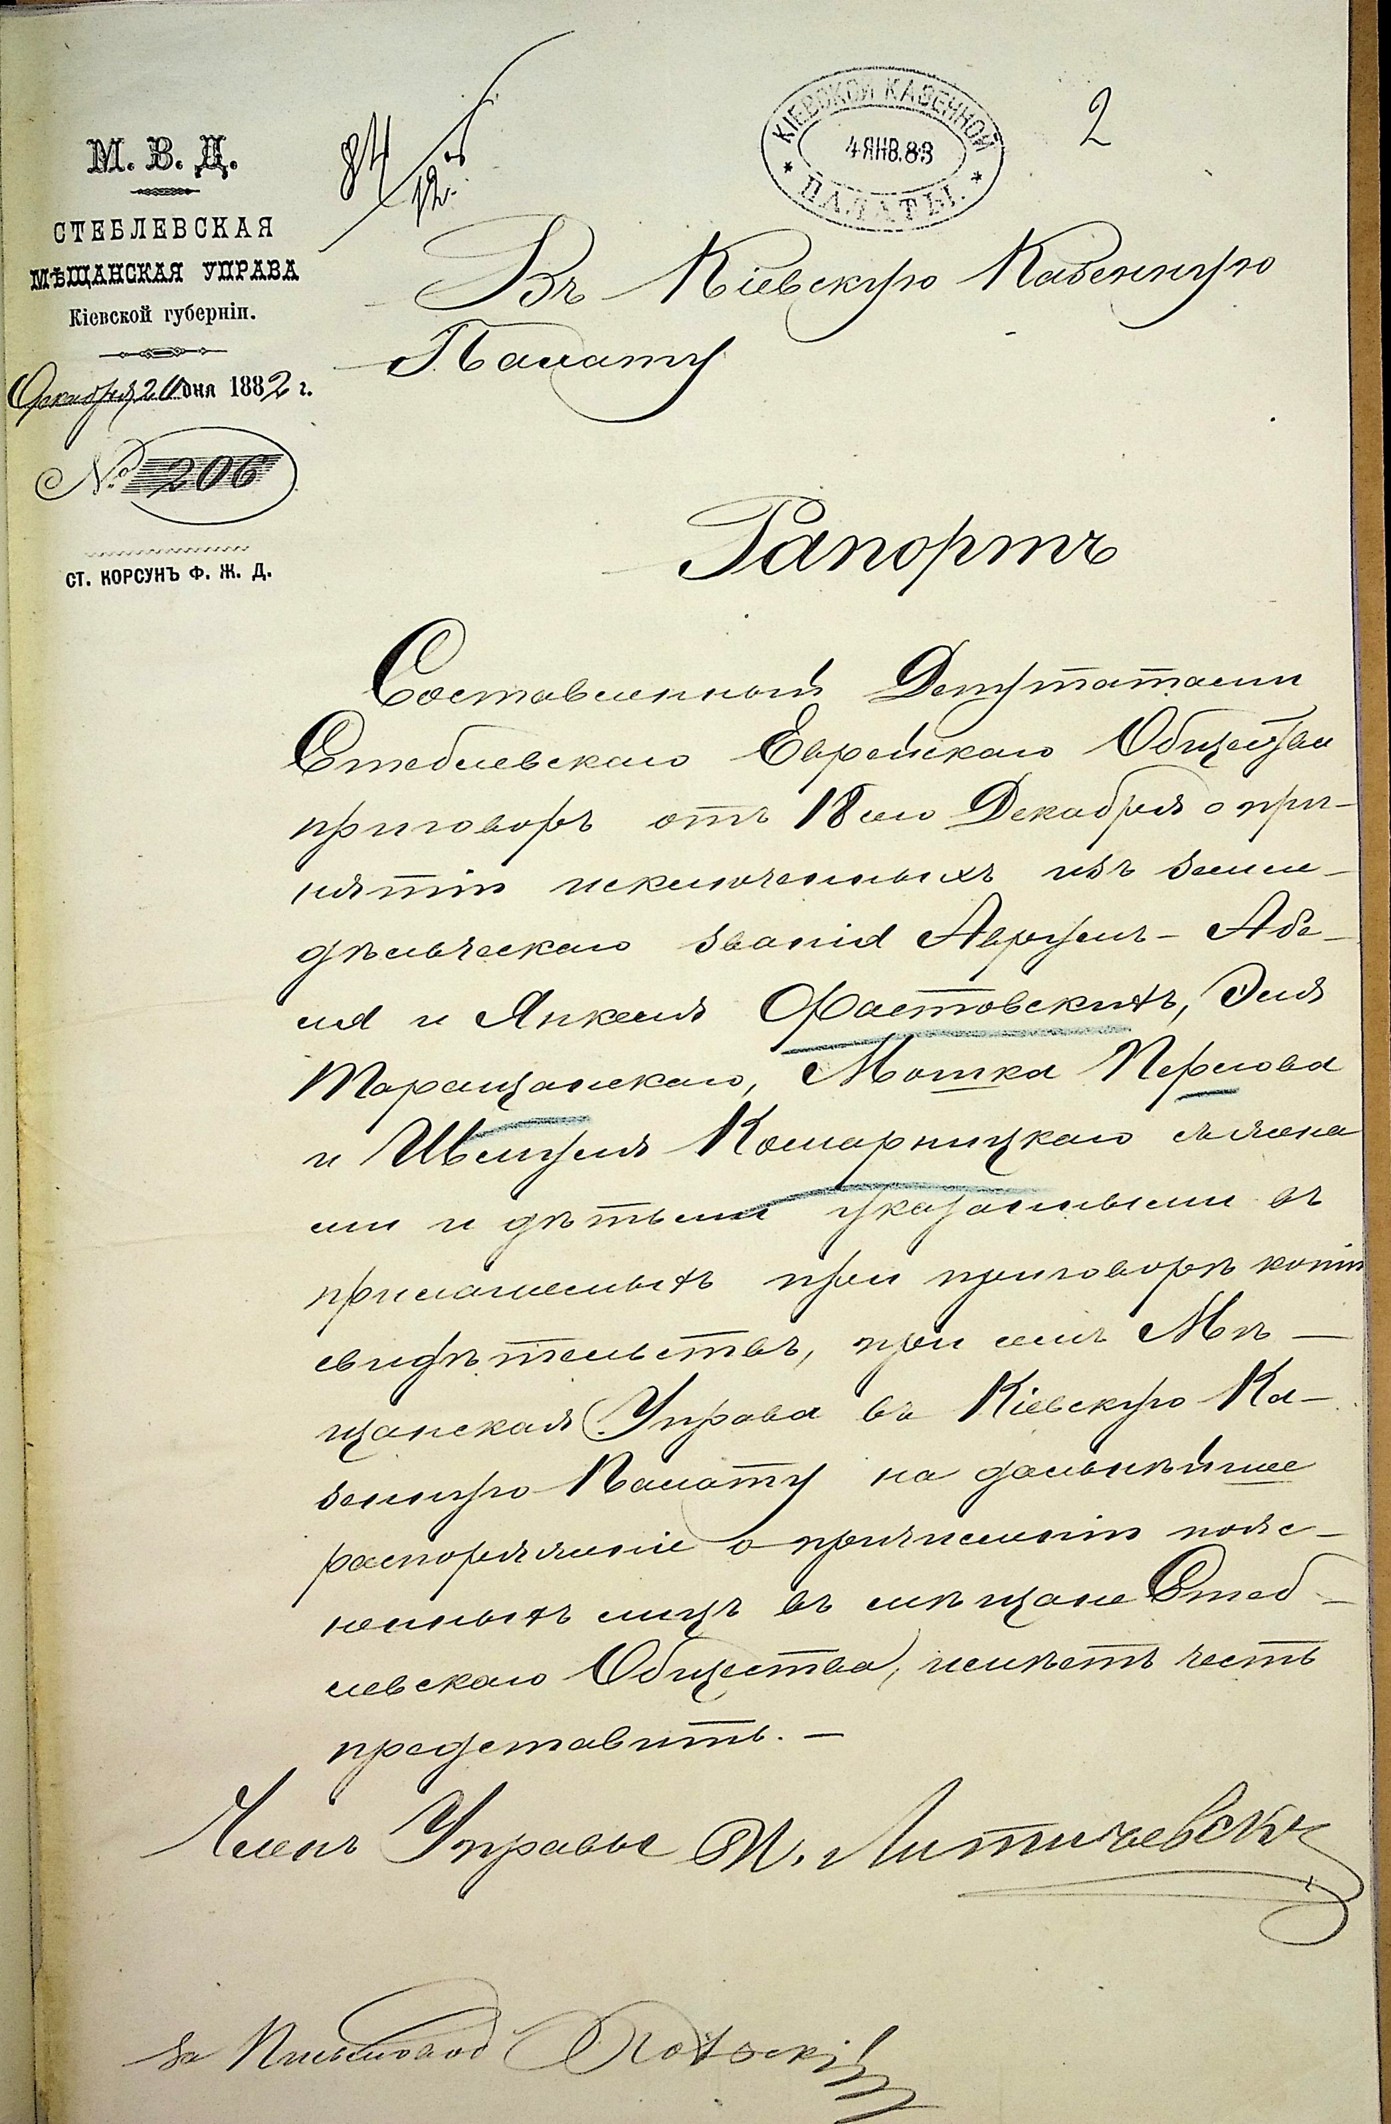 2
84
КІЕВСКОЙ КАЗЕННОЙ
4 ЯНВ. 83
ПАЛАТЫ.
М. В. Д.
СТЕБЛЕВСКАЯ
МѢЩАНСКАЯ УПРАВА
Кіевской губерніи.
Декабря 20 дня 1882 г.
№ 206
СТ. КОРСУНЪ Ф. Ж. Д.
Въ Кіевскую Казенную
Палату
Рапортъ
Составленный Депутатами
Стеблевскаго Еврейскаго Общества
приговоръ отъ 18го Декабря о при-
нятіи исключенныхъ изъ земле-
дѣльческаго званія Аврумъ-Абе-
ля и Янкеля Фастовскихъ, Эля
Таращанскаго, Мошка Перлова
и Шмуля Комарницкаго съ жена
ми и дѣтьми указанными въ
прилагаемыхъ при приговорѣ копіи
свидѣтельствъ, при семъ Мѣ-
щанская Управа въ Кіевскую Ка-
зенную Палату на дальнѣйшее
распоряженіе о причисленіи пояс-
ненныхъ лицъ въ мѣщане Стеб-
левскаго Общества, имѣетъ честь
представить. -
Членъ Управы М. Литичевски
За Письмовод